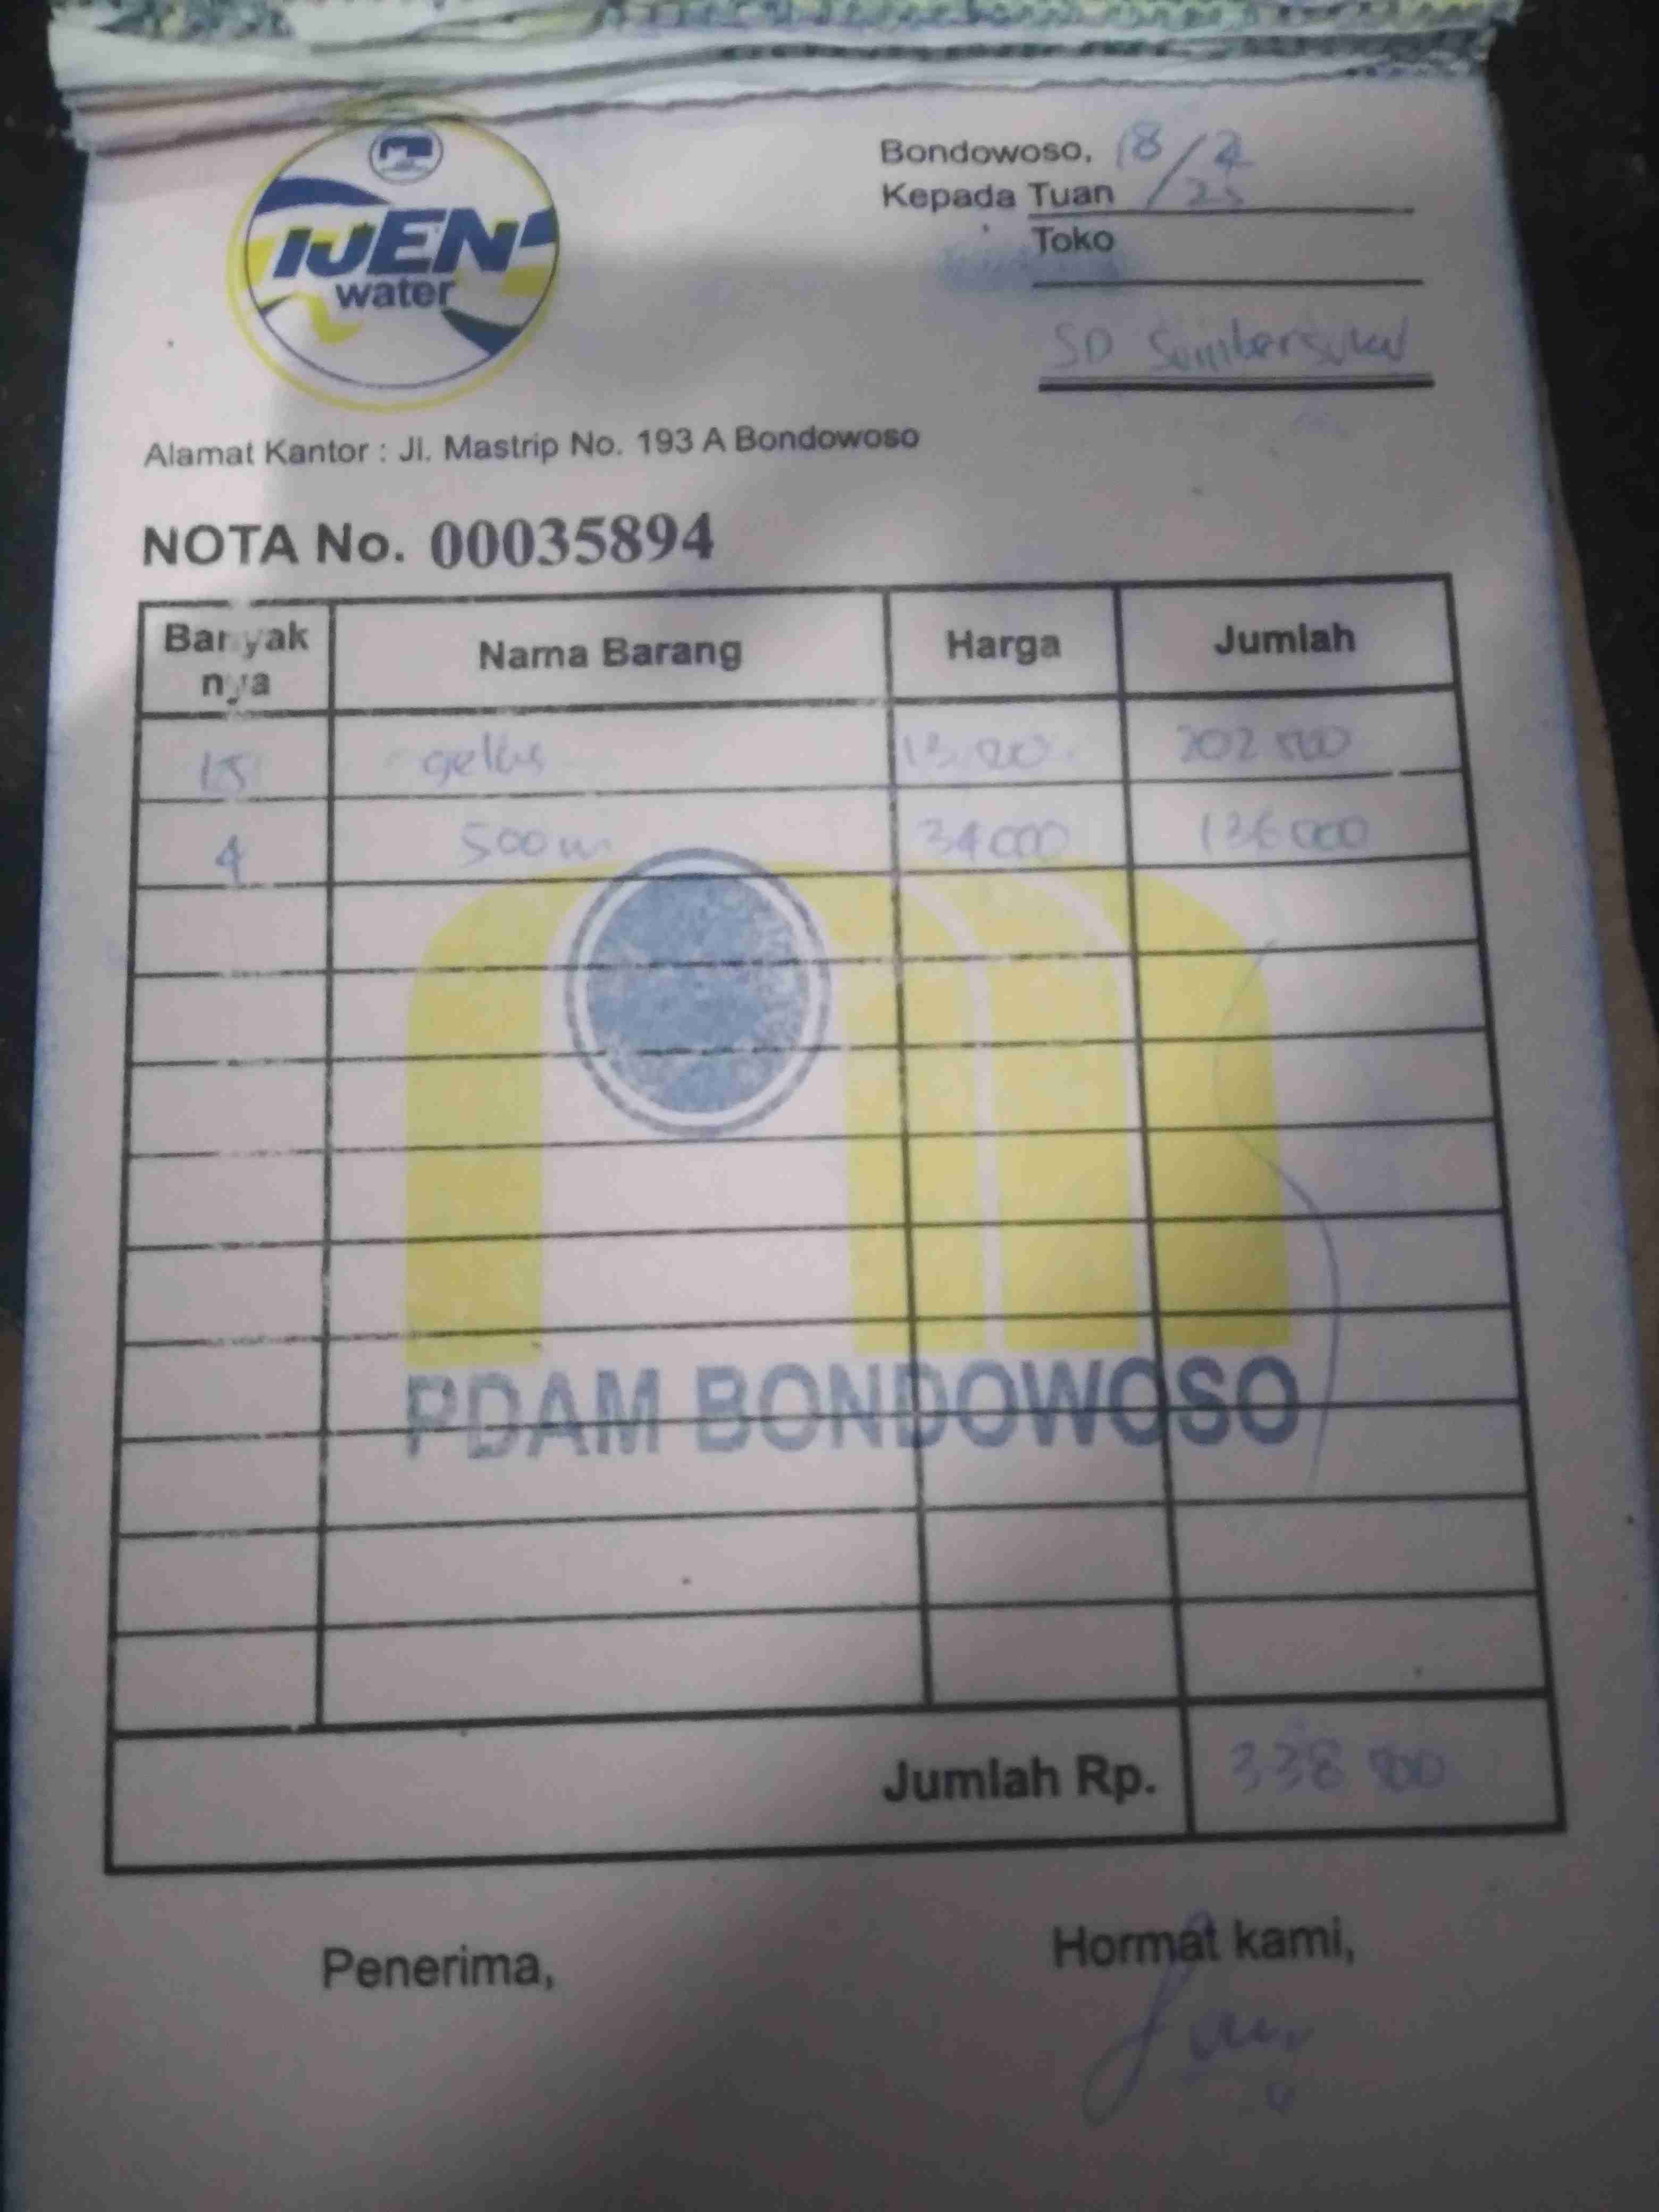 IJEN
water
Bondowoso, 18/2
25
Kepada Tuan
Toko
SD Sumbersuko
Alamat Kantor : Jl. Mastrip No. 193 A Bondowoso
NOTA No. 00035894
Banyak nya Nama Barang Harga Jumlah
15 gelas 202 500
4 500 m 34 000 136 000
PDAM BONDOWOSO
Jumlah Rp. 338 500
Penerima, Hormat kami,